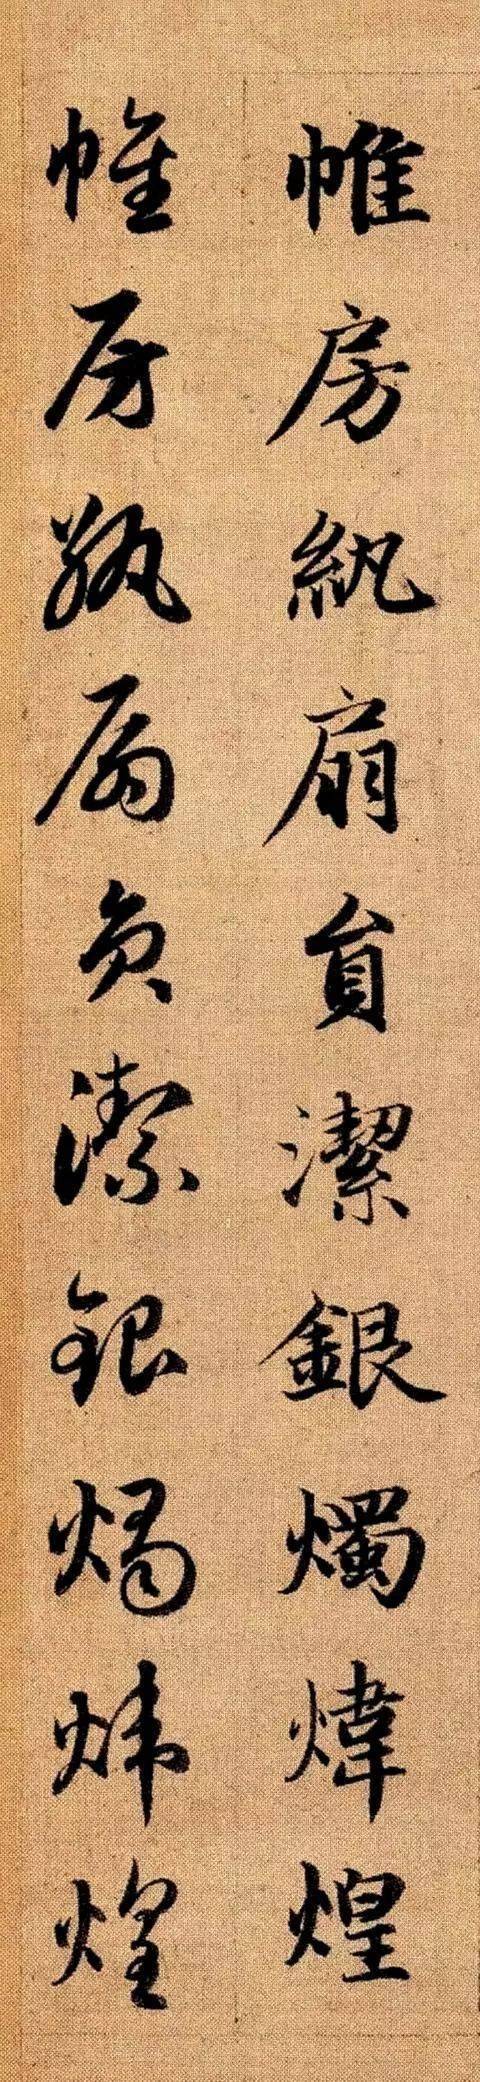 帷房紈扇員潔銀燭煒煌
帷房紈扇員潔銀燭煒煌